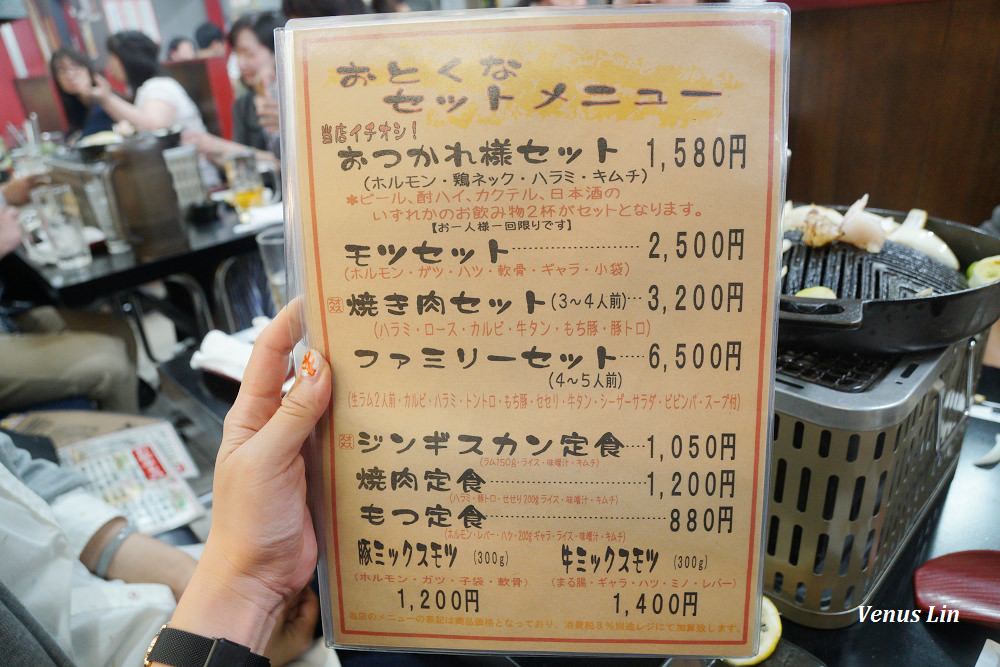 おとくな
セットメニュー
当店イチオシ!
おつかれ様セット 1,580円
(ホルモン・鶏ネック・ハラミ・キムチ)
*ビール、酎ハイ、カクテル、日本酒の
いずれかのお飲み物2杯がセットとなります。
【お一人様一回限りです】
モツセット 2,500円
(ホルモン・ガツ・ハツ・軟骨・ギャラ・小袋)
焼き肉セット(3~4人前) 3,200円
(ハラミ・ロース・カルビ・牛タン・もち豚・豚トロ)
ファミリーセット 6,500円
(4~5人前)
(生ラム2人前・カルビ・ハラミ・トントロ・もち豚・セセリ・牛タン・シーザーサラダ・ビビンバ・スープ付)
ジンギスカン定食 1,050円
(ラム150g・ライス・味噌汁・キムチ)
焼肉定食 1,200円
(ハラミ・豚トロ・せせり200g ライス・味噌汁・キムチ)
もつ定食 880円
(ホルモン・レバー・ハツ・200g ギャラ・ライス・味噌汁・キムチ)
豚ミックスモツ (300g) 牛ミックスモツ (300g)
(ホルモン・ガツ・子袋・軟骨) (まる腸・ギャラ・ハツ・ミノ・レバー)
1,200円 1,400円
当店のメニューの表記は商品価格となっており、消費税8%別途レジにて加算致します。
Venus Lin